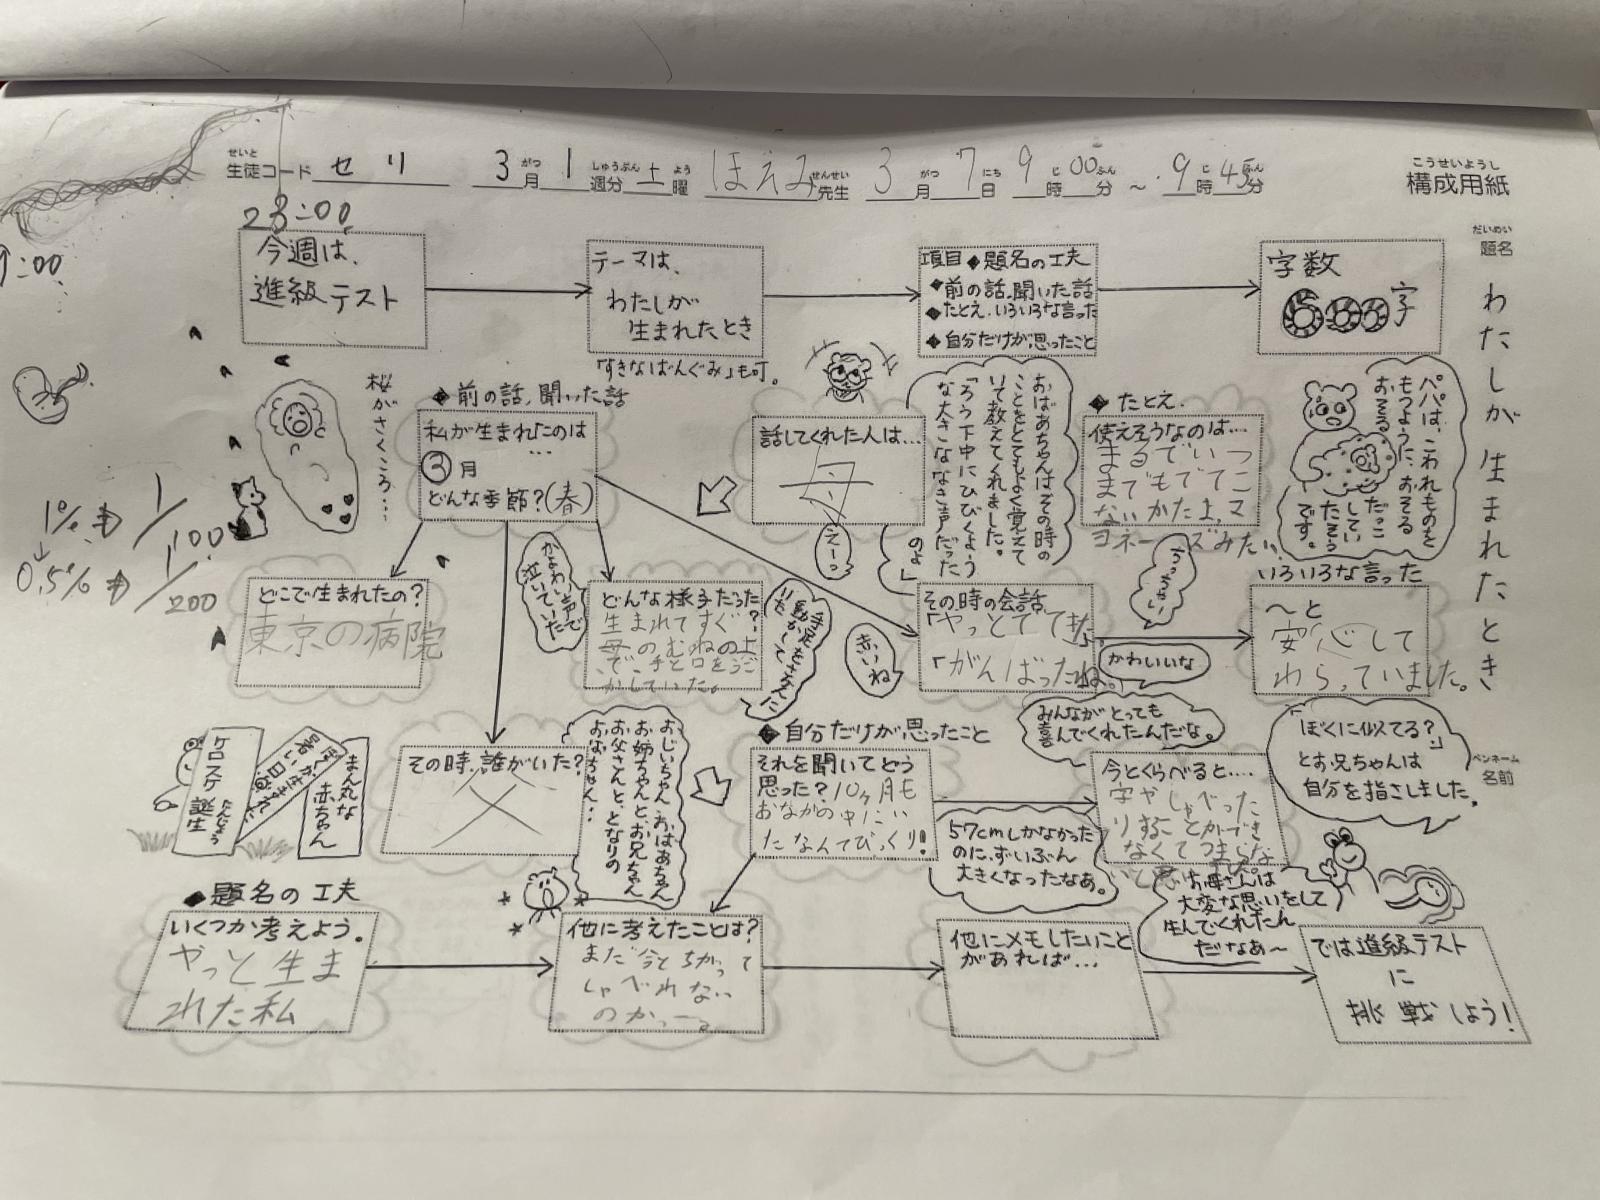 せいと
生徒コード セリ 3月 1週分 土曜 ほえみ先生 3月 7日 9時00分 ～ 9時45分
がつ しゅうぶん よう せんせい がつ にち じ ふん じ ふん
こうせいようし
構成用紙
だいめい
題名
わたしが生まれたとき
ペンネーム
名前
23:00
9:00
今週は、
進級テスト
テーマは、
わたしが
生まれたとき
「すきなばんぐみ」も可。
項目◆題名の工夫
◆前の話、聞いた話
◆たとえ、いろいろな言った
◆自分だけが思ったこと
字数
600字
桜がさくころ…
1%→1/100
0.5%→1/200
◆前の話、聞いた話
私が生まれたのは
…
③月
どんな季節?(春)
話してくれた人は…
母
えーっ
おばあちゃんはその時の
ことをとてもよく覚えて
いて教えてくれました。
「ろう下中にひびくよう
な大きななき声だった
のよ」
◆たとえ.
使えそうなのは…
まるでいつ
までもでてこ
ないかたよ、マ
ヨネーズみたい、
パパは、こわれものを
もつように、おそる
おそる
だっこ
してい
たそう
です。
どこで生まれたの?
東京の病院
かよわい声で
泣いていた
どんな様子だった?
生まれてすぐ
母のむねの上
で、手と口をうご
かしていた。
手足をさかんに
動かして
いた
赤いね
その時の会話
「やっとでてきた」
「がんばったね。」
ちっちゃい
かわいいな
いろいろな言った
～と
安心して
わらっていました。
みんながとっても
喜んでくれたんだな。
「ぼくに似てる?」
とお兄ちゃんは
自分を指さしました。
まん丸な
赤ちゃん
ぼくが生まれた
暑い日
ケロスケ誕生
たんじょう
その時、誰がいた?
父
おじいちゃん、おばあちゃん
お姉ちゃんと、お兄ちゃん
お父さんと、となりの
おばちゃん…
◆自分だけが思ったこと
それを聞いてどう
思った?10ヶ月も
おなかの中にい
たなんてびっくり!
57cmしかなかった
のに、ずいぶん
大きくなったなあ。
今とくらべると…
字やしゃべった
りすることができ
なくてつまらな
いと思った。
お母さんは
大変な思いをして
生んでくれたん
だなあ～
◆題名の工夫
いくつか考えよう。
やっと生ま
れた私
他に考えたことは?
まだ今とちがって
しゃべれない
のかっーる
他にメモしたいこと
があれば…
では進級テスト
に
挑戦しよう!